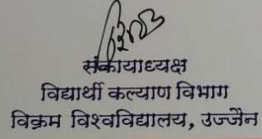 संकायाध्यक्ष
विद्यार्थी कल्याण विभाग
विक्रम विश्वविद्यालय, उज्जैन